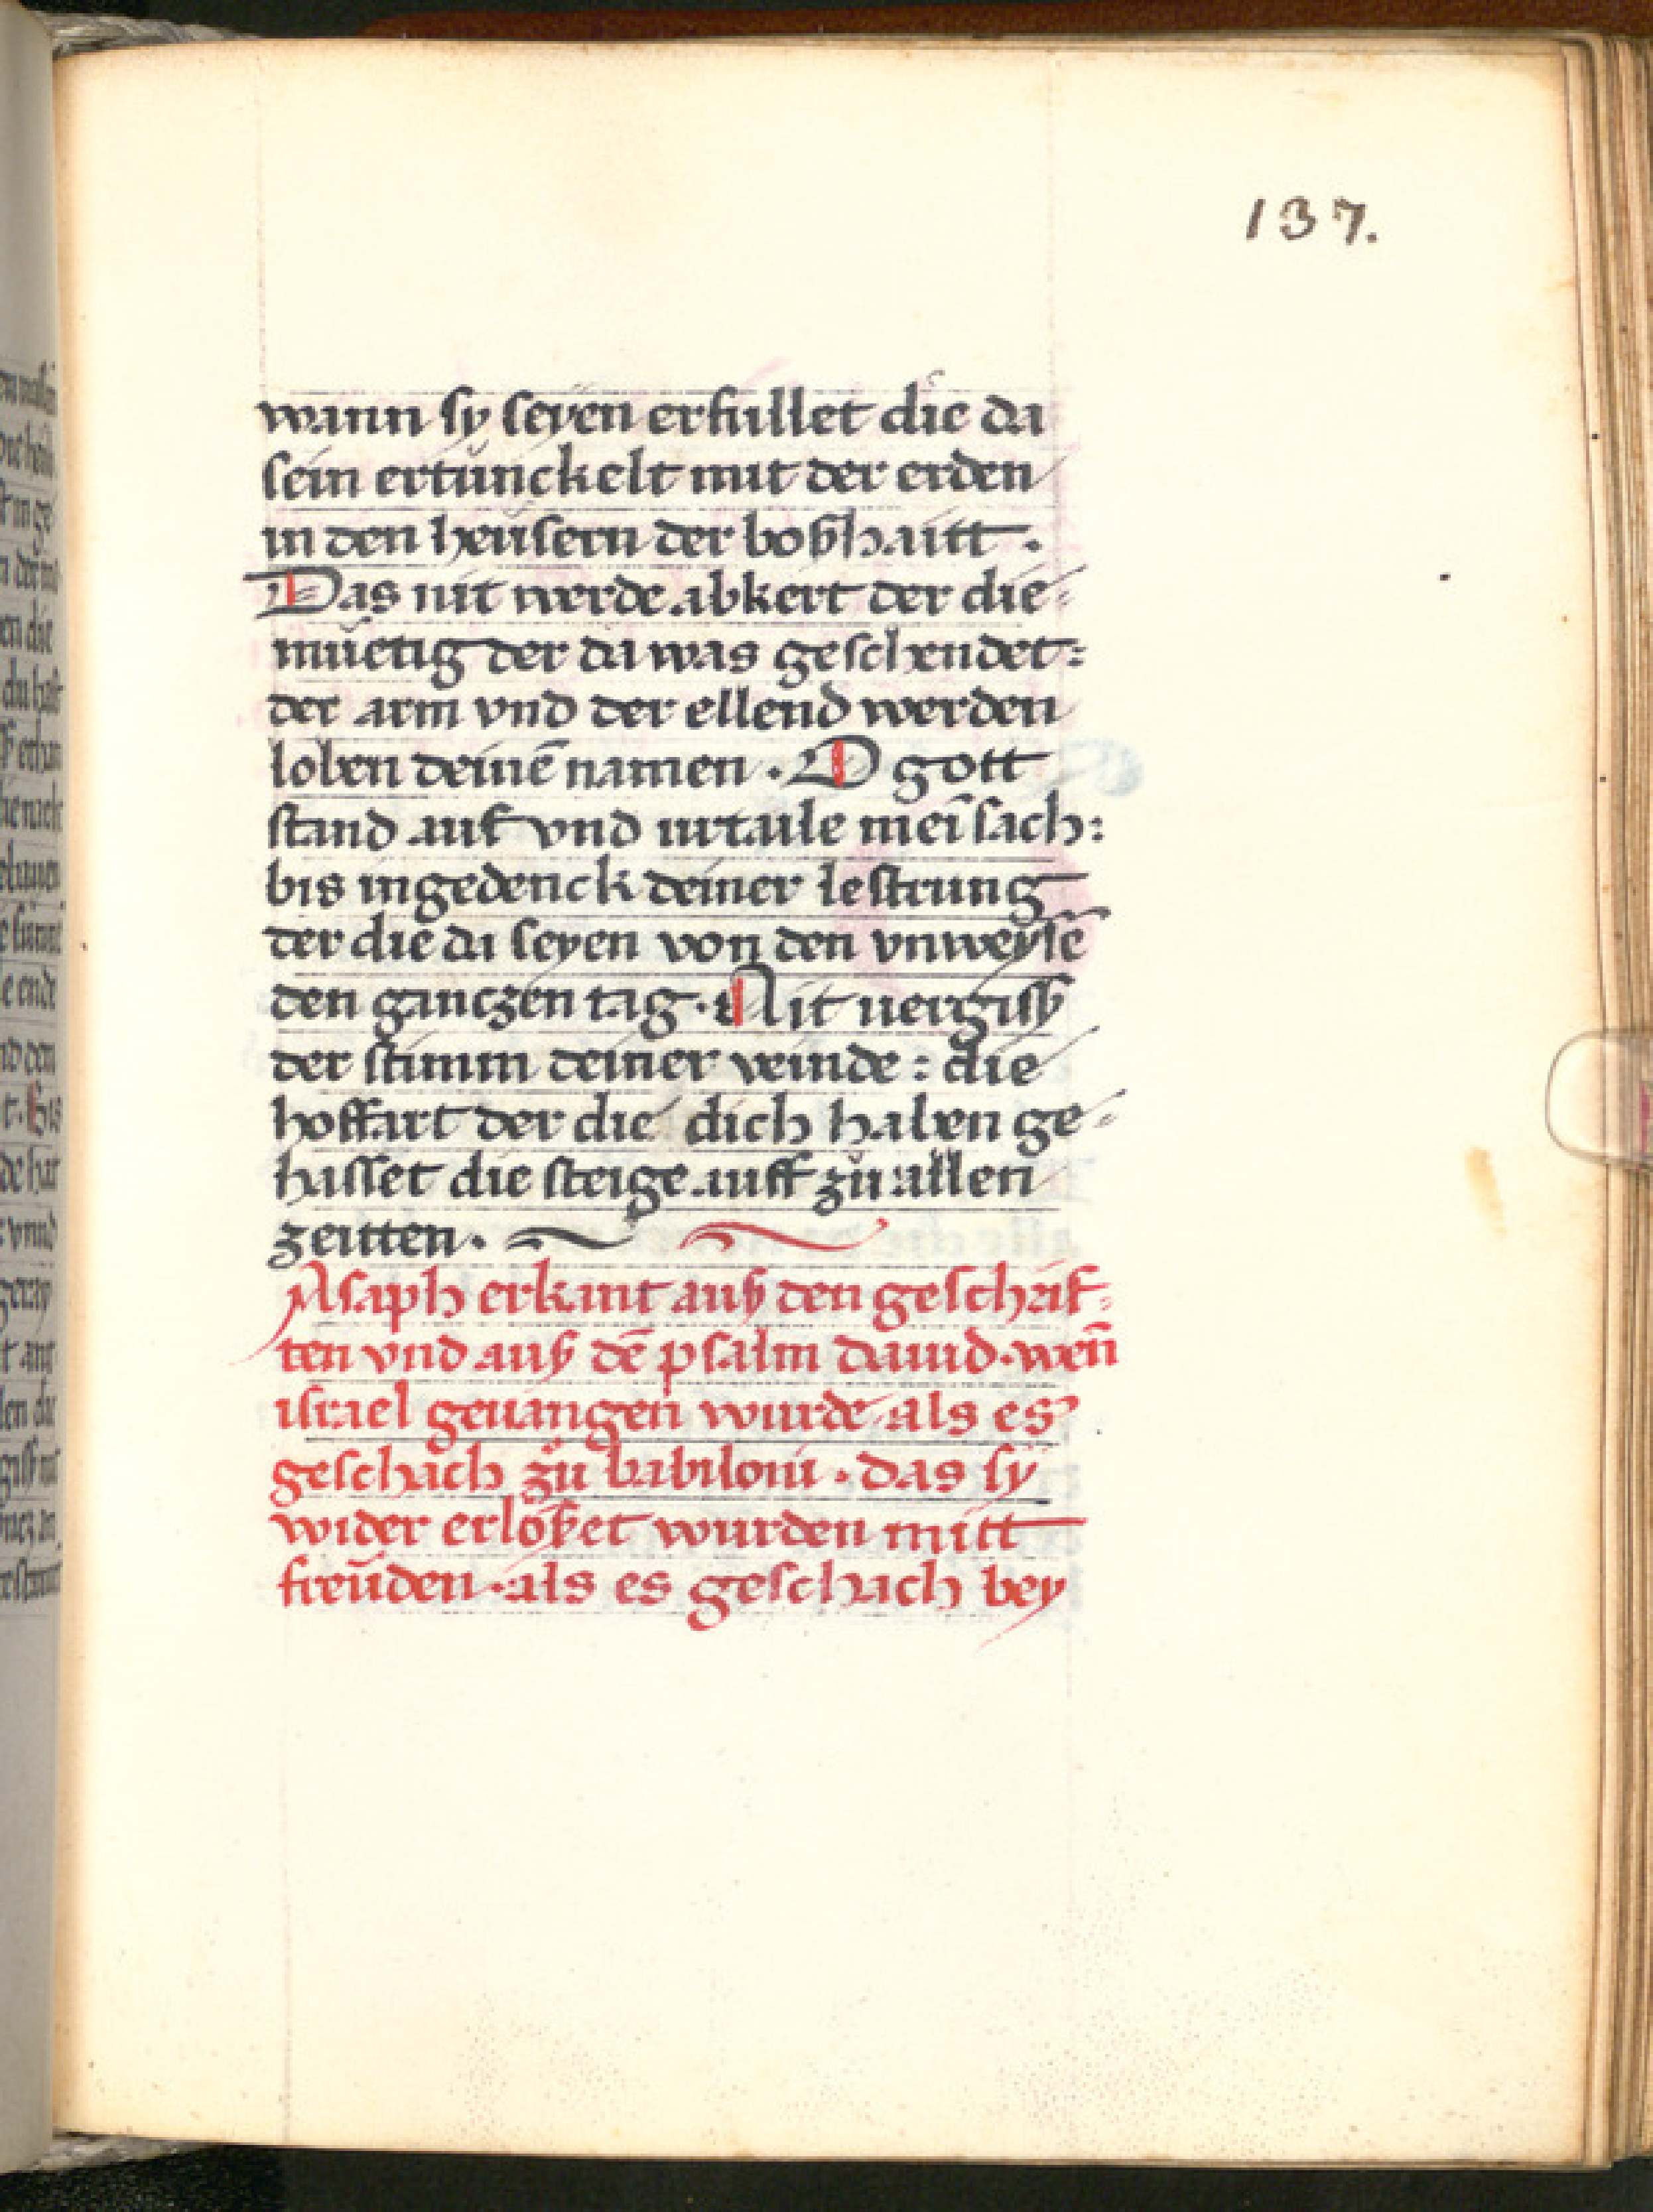 137.
wann sy seyen erfullet die da
sein ertunckelt mit der erden
in den heusern der boßhaitt .
Das nit werde abkert der die=
mŭetig der da was geschendet :
der arm vnd der ellend werden
loben deinē namen . O gott
stand auf vnd urtaile mei͂ sach :
bis ingedenck deiner lestrung
der die da seyen von den vnweysē
den ganczen tag . Nit uergiß
der stimm deiner veinde : die
hoffart der die dich haben ge=
hasset die steige auff zŭ allen
zeitten .
Asaph erkant auß den geschrif=
ten vnd auß dē psalm dauid . wen̄
israel geuangen wurde als es
geschach zŭ babiloni . das sy
wider erloßet wurden mitt
freŭden . als es geschach bey